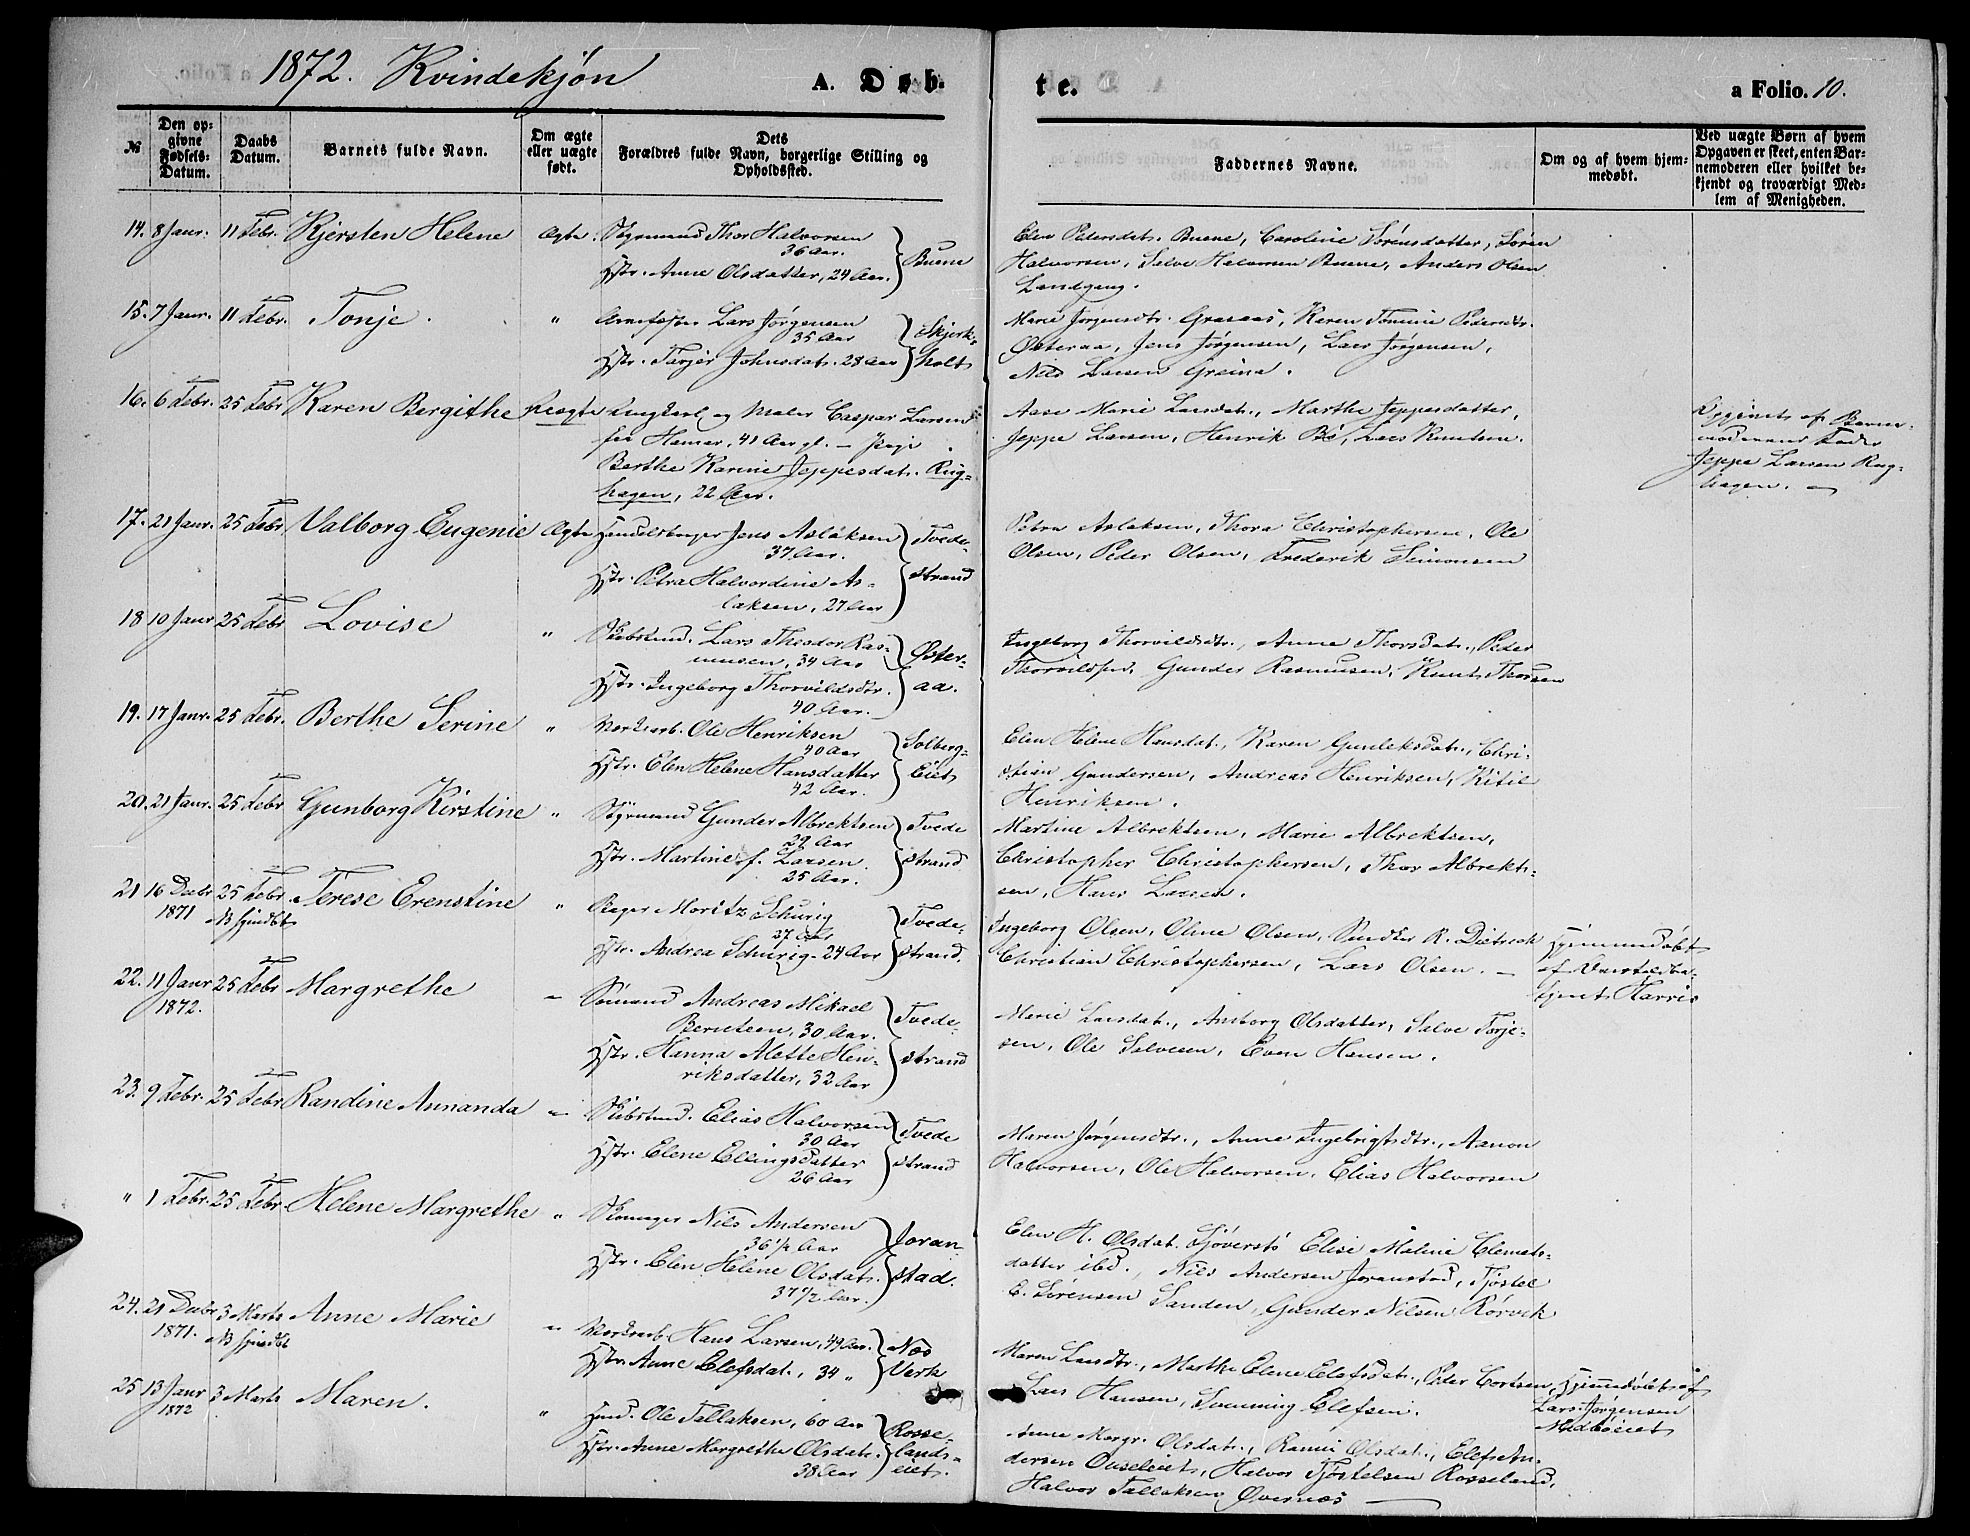 1872. Kvindekjøn
A. Døb-
te.
a Folio. 10.
№
Den op-
givne
Fødsels-
Datum.
Daabs
Datum.
Barnets fulde Navn.
Om ægte
eller uægte
født.
Dets
Forældres fulde Navn, borgerlige Stilling og
Opholdssted.
Faddernes Navne.
Om og af hvem hjem-
medøbt.
Ved uægte Børn af hvem
Opgaven er skeet, enten Bar-
nemoderen eller hvilket be-
kjendt og troværdigt Med-
lem af Menigheden.
14. 8 Janr. 11 Febr. Kjersten Helene Ægte. Styrmand Thor Halvorsen
36 Aar.
Hstr. Anne Olsdatter, 24 Aar.
Buene
Elen Pedersdat. Buene, Caroline Sørensdatter, Søren
Halvorsen, Salve Halvorsen Buene, Anders Olsen
Landgang.
15. 7 Janr. 11 Febr. Tonje. " Lars Jørgensen
35 Aar
Hstr. Terjer Johnsdat. 28 Aar
Skjerk-
holt
Marie Jørgensdtr. Graaaas, Karen Tomine Pedersdtr.
Østeraa, Jens Jørgensen, Lars Jørgensen,
Nils Larsen Greina.
16. 6 Febr. 25 Febr Karen Bergithe Uægte Ungkarl og Maler Caspar Larsen
fra Hamar, 41 Aar gl. — Pige
Berthe Karine Jeppesdat. Rug-
hagen, 22 Aar.
Aase Marie Larsdat., Marthe Jeppesdatter,
Jeppe Larsen, Henrik Bø, Lars Knutsen.
Opgivet af Barne-
moderens Fader
Jeppe Larsen Rug-
hagen. —
17. 21 Janr. 25 Febr Valborg Eugenie Ægte Handelsborger Jens Aslaksen
37 Aar.
Hstr. Petra Halvordine As-
laksen, 27 Aar
Tvede-
strand
Petra Aslaksen, Thora Christophersen, Ole
Olsen, Peder Olsen, Frederik Simonsen
18 10 Janr 25 Febr Lovise " Skibstmd. Lars Theador Ras-
mussen, 34 Aar
Hstr. Ingeborg Thorvildsdtr.
40 Aar.
Øster-
aa.
Ingeborg Thorvildsdtr., Anne Thorsdat., Peder
Thorvildsen, Gunder Rasmusen, Knut Thorsen
19. 17 Janr. 25 Febr. Berthe Serine " Værksarb. Ole Henriksen
40 Aar
Hstr. Elen Helene Hansdatter
42 Aar.
Solberg-
Eiet
Elen Helene Hansdat., Karen Gunleksdat., Chri-
stian Gundersen, Andreas Henriksen, Kitil
Henriksen.
20. 21 Janr. 25 Febr Gunborg Kirstine " Styrmand Gunder Albrektsen
29 Aar
Hstr. Martine f. Larsen.
25 Aar.
Tvede
strand
Martine Albrektsen, Marie Albrektsen,
Christopher Christophersen, Thor Albrekt-
sen, Hans Larsen.
21 16 Decbr 25 Febr Terese Erenstine " Bager Moritz Schurig
1871 NB hjmdbt 37 Aar
Hstr. Andrea Schurig 24 Aar
Tvede-
strand.
Ingeborg Olsen, Oline Olsen, R. Dietrech
Christian Christophersen, Lars Olsen. —
Hjemmedøbt
af
Harris
22. 11 Janr 25 Febr Margrethe — Sømand Andreas Mikael
1872. Berntsen, 30 Aar.
Hstr. Hanna Mette Hen-
riksdatter, 32 Aar
Tvede-
strand
Marie Larsdat., Anborg Olsdatter, Salve Terje-
sen, Ole Salvesen, Even Hansen.
23. 9 Febr. 25 Febr Randine Annanda — Skibstmd. Elias Halvorsen
30 Aar
Hstr. Elene Ellingsdatter
26 Aar
Tvede
strand
Maren Jørgensdtr., Anne Ingebrigtsdtr., Aanon
Halvorsen, Ole Halvorsen, Elias Halvorsen
" 1 Febr. 25 Febr. Helene Margrethe " Skomager Nils Andersen
36 1/2 Aar
Hstr. Elen Helene Olsdat.
37 1/2 Aar.
Joran-
stad.
Elen H. Olsdat. Sjöverstö Elise Maline Clemets-
datter ibd., Nils Andersen Joranstad, Tjøstel
E. Sørensen Sanden, Gunder Nilsen Rørvik
24. 21 Decbr 3 Marts Anne Marie — Værksarb. Hans Larsen, 49 Aar.
1871. NB hjmdbt
Hstr. Anne Elefsdat., 34 "
Næs
Værk
Maren Larsdtr., Marthe Elene Elefsdat., Peder Cortsen,
Lars Hansen, Svenning Elefsen.
Hjemmedøbt af
Lars Jørgensen
Medbøeiet
25 13 Janr 3 Marts Maren. " Hmd. Ole Tallaksen, 60 Aar
1872
Hstr. Anne Margrethe Olsdat.
38 Aar
Rosse-
lands-
eiet.
Anne Margr. Olsdat., Rannei Olsdat., Elef An-
dersen Ouseleiet, Halvor Tjøstelsen Rosseland,
Halvor Tallaksen Øvernæs —